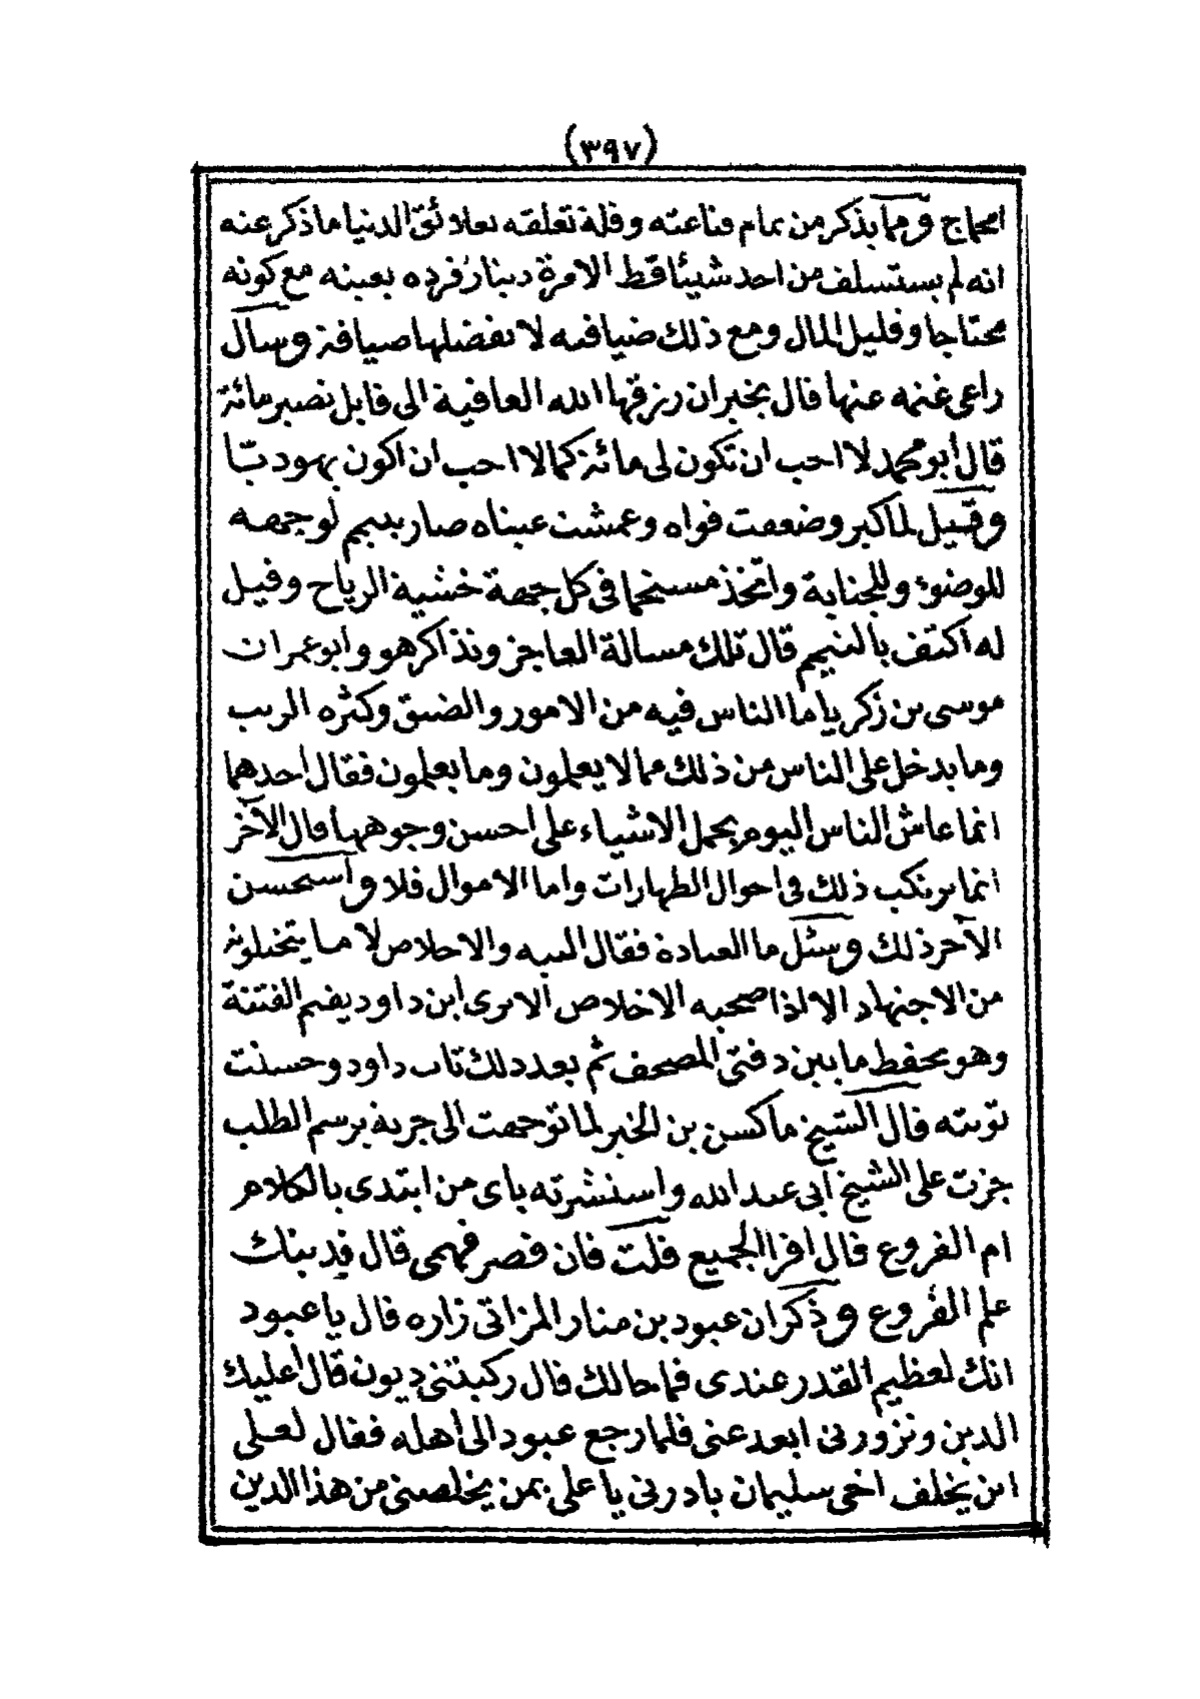 (٣٩٧)
الحجاج ومما يذكر من تمام قناعته وقلة تعلقه بعلائق الدنيا ما ذكر عنه
انه لم يستسلف من احد شيئا قط الا مرة دينار فرده بعينه مع كونه
محتاجا وقليل المال ومع ذلك ضيافته لا تفضلها ضيافة وسأل
راعي غنمه عنها فقال بخير ان رزقها الله العافية الى قابل تصير مائة
قال أبو محمد لا احب ان تكون لي مائة كما لا احب ان اكون يهوديّا
وقيل لما كبر وضعفت قواه وعمشت عيناه صار يتيمم لوجهه
للوضوء وللجنابة واتخذ مسحا في كل جهة خشية الرياح وقيل
له اكتف بالتيمم قال تلك مسالة العاجز وتذاكر هو وأبو عمران
موسى بن زكرياء ما الناس فيه من الامور والضيق وكثره الريب
وما يدخل على الناس من ذلك مما لا يعلمون وما يعلمون فقال أحدهما
انما عاش الناس اليوم بحمل الاشياء على احسن وجوهها قال الآخر
انما يرتكب ذلك في احوال الطهارات واما الاموال فلا واستحسن
الآخر ذلك وسئل ما العبادة فقال النية والاخلاص لا ما يتخيلونه
من الاجتهاد الا اذا صحبه الاخلاص ألا ترى ابن داود يفهم الفتنة
وهو يحفظ ما بين دفتي المصحف ثم بعد ذلك تاب داود وحسنت
توبته قال الشيخ ماكسن بن الخير لما توجهت الى جربة برسم الطلب
جزت على الشيخ أبي عبد الله واستشرته باي من ابتدى بالكلام
ام الفروع قال اقرا الجميع قلت فان قصر فهمى قال فدينك
علم الفروع وذكر ان عبود بن منار المزاتي زاره قال يا عبود
انك لعظيم القدر عندى فما حالك قال ركبتني ديون قال أعليك
الدين وتزورنى ابعد عنى فلما رجع عبود الى أهله فقال لعلى
ابن يخلف اخى سليمان بادرني يا على بمن يخلصنى من هذا الدين